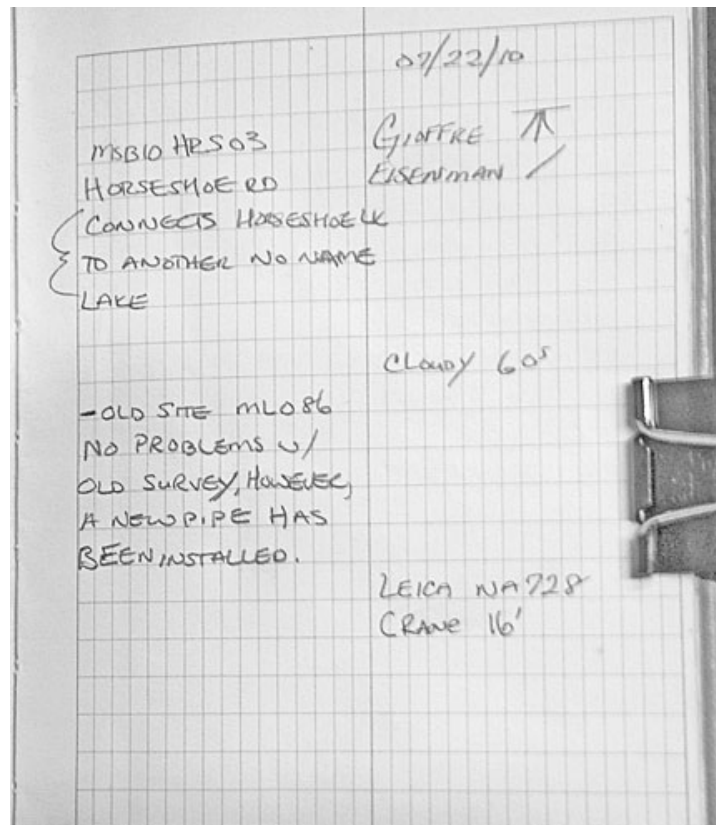 07/22/10
MSB10 HRS03
HORSESHOE RD
CONNECTS HORSESHOE LK
TO ANOTHER NO NAME
LAKE
GIOFFRE
EISENMAN
CLOUDY 60s
-OLD SITE ML086
NO PROBLEMS W/
OLD SURVEY, HOWEVER,
A NEW PIPE HAS
BEEN INSTALLED.
LEICA NA728
CRANE 16'